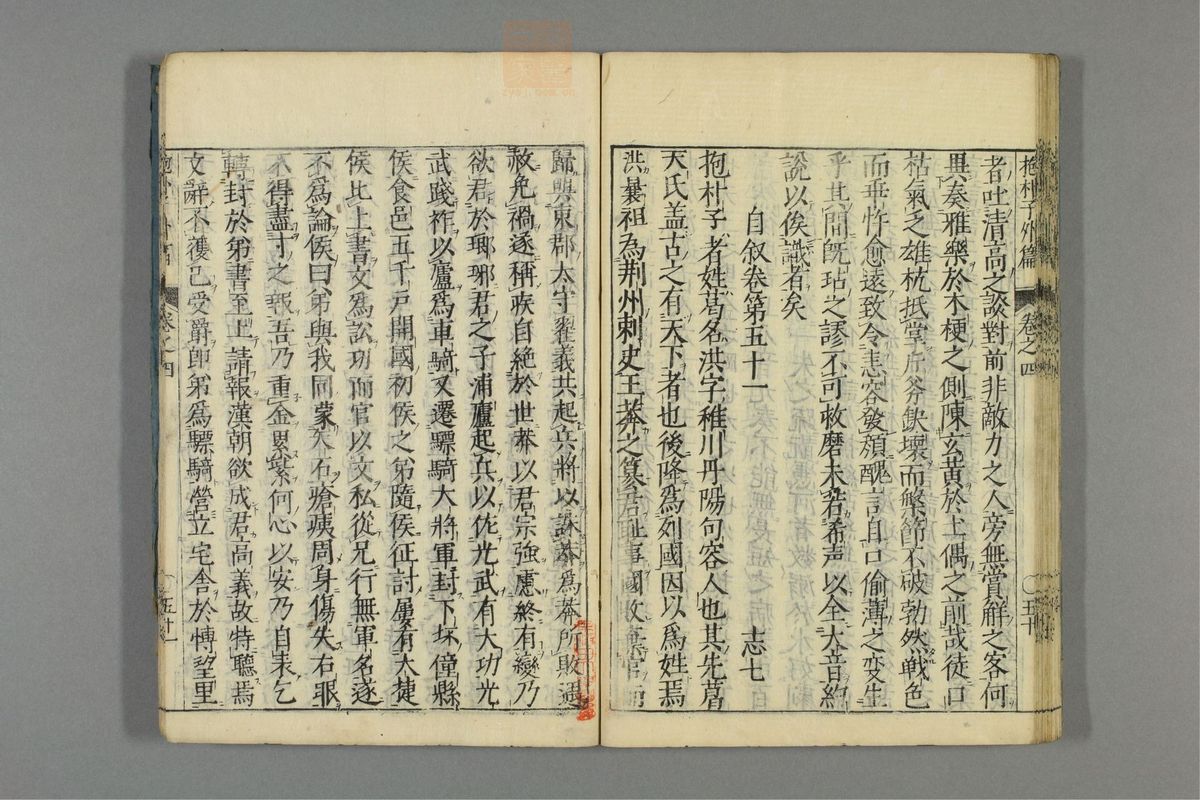 抱朴子外篇 卷之四 五十
者吐清高之談對前非敵力之人旁無賞解之客何
異奏雅樂於木梗之側陳玄黃於土偶之前哉徒口
枯氣乏雄杭抵掌斤斧缺壞而槃節不破勃然戰色
而乖忤愈遠致令恚容發顏醜言自口偷薄之变生
乎其間既玷之謬不可救磨未若希声以全大音約
說以俟識者矣
自叙卷第五十一 志七
抱朴子者姓葛名洪字稚川丹陽句容人也其先葛
天氏盖古之有天下者也後降爲列國因以爲姓焉
洪曩祖為荆州刺史王莽之篡君恥事國敗棄官而
歸與東郡太守翟義共起兵將以誅莽爲莽所敗遇
赦免禍遂稱疾自絶於世莽以君宗強慮終有變乃
欲君於瑯琊君之子浦廬起兵以佐光武有大功光
武踐祚以廬爲車騎又遷驃騎大將軍封下邳僮縣
侯食邑五千戸開國初侯之弟隨侯征討屢有大捷
侯比上書文爲訟功而官以文私從兄行無軍名遂
不爲論侯曰弟與我同蒙矢石瘡痍周身傷失右眼
不得盡寸之報吾乃重金累紫何心以安乃自表乞
轉封於弟書至上請報漢朝欲成君高義故特聽焉
文辭不獲已受爵即弟爲驃騎營立宅舍於博望里
卷之四 五十一